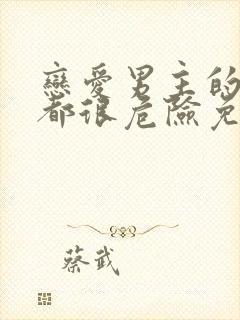 戀愛男主的
都很危險免
蔡武